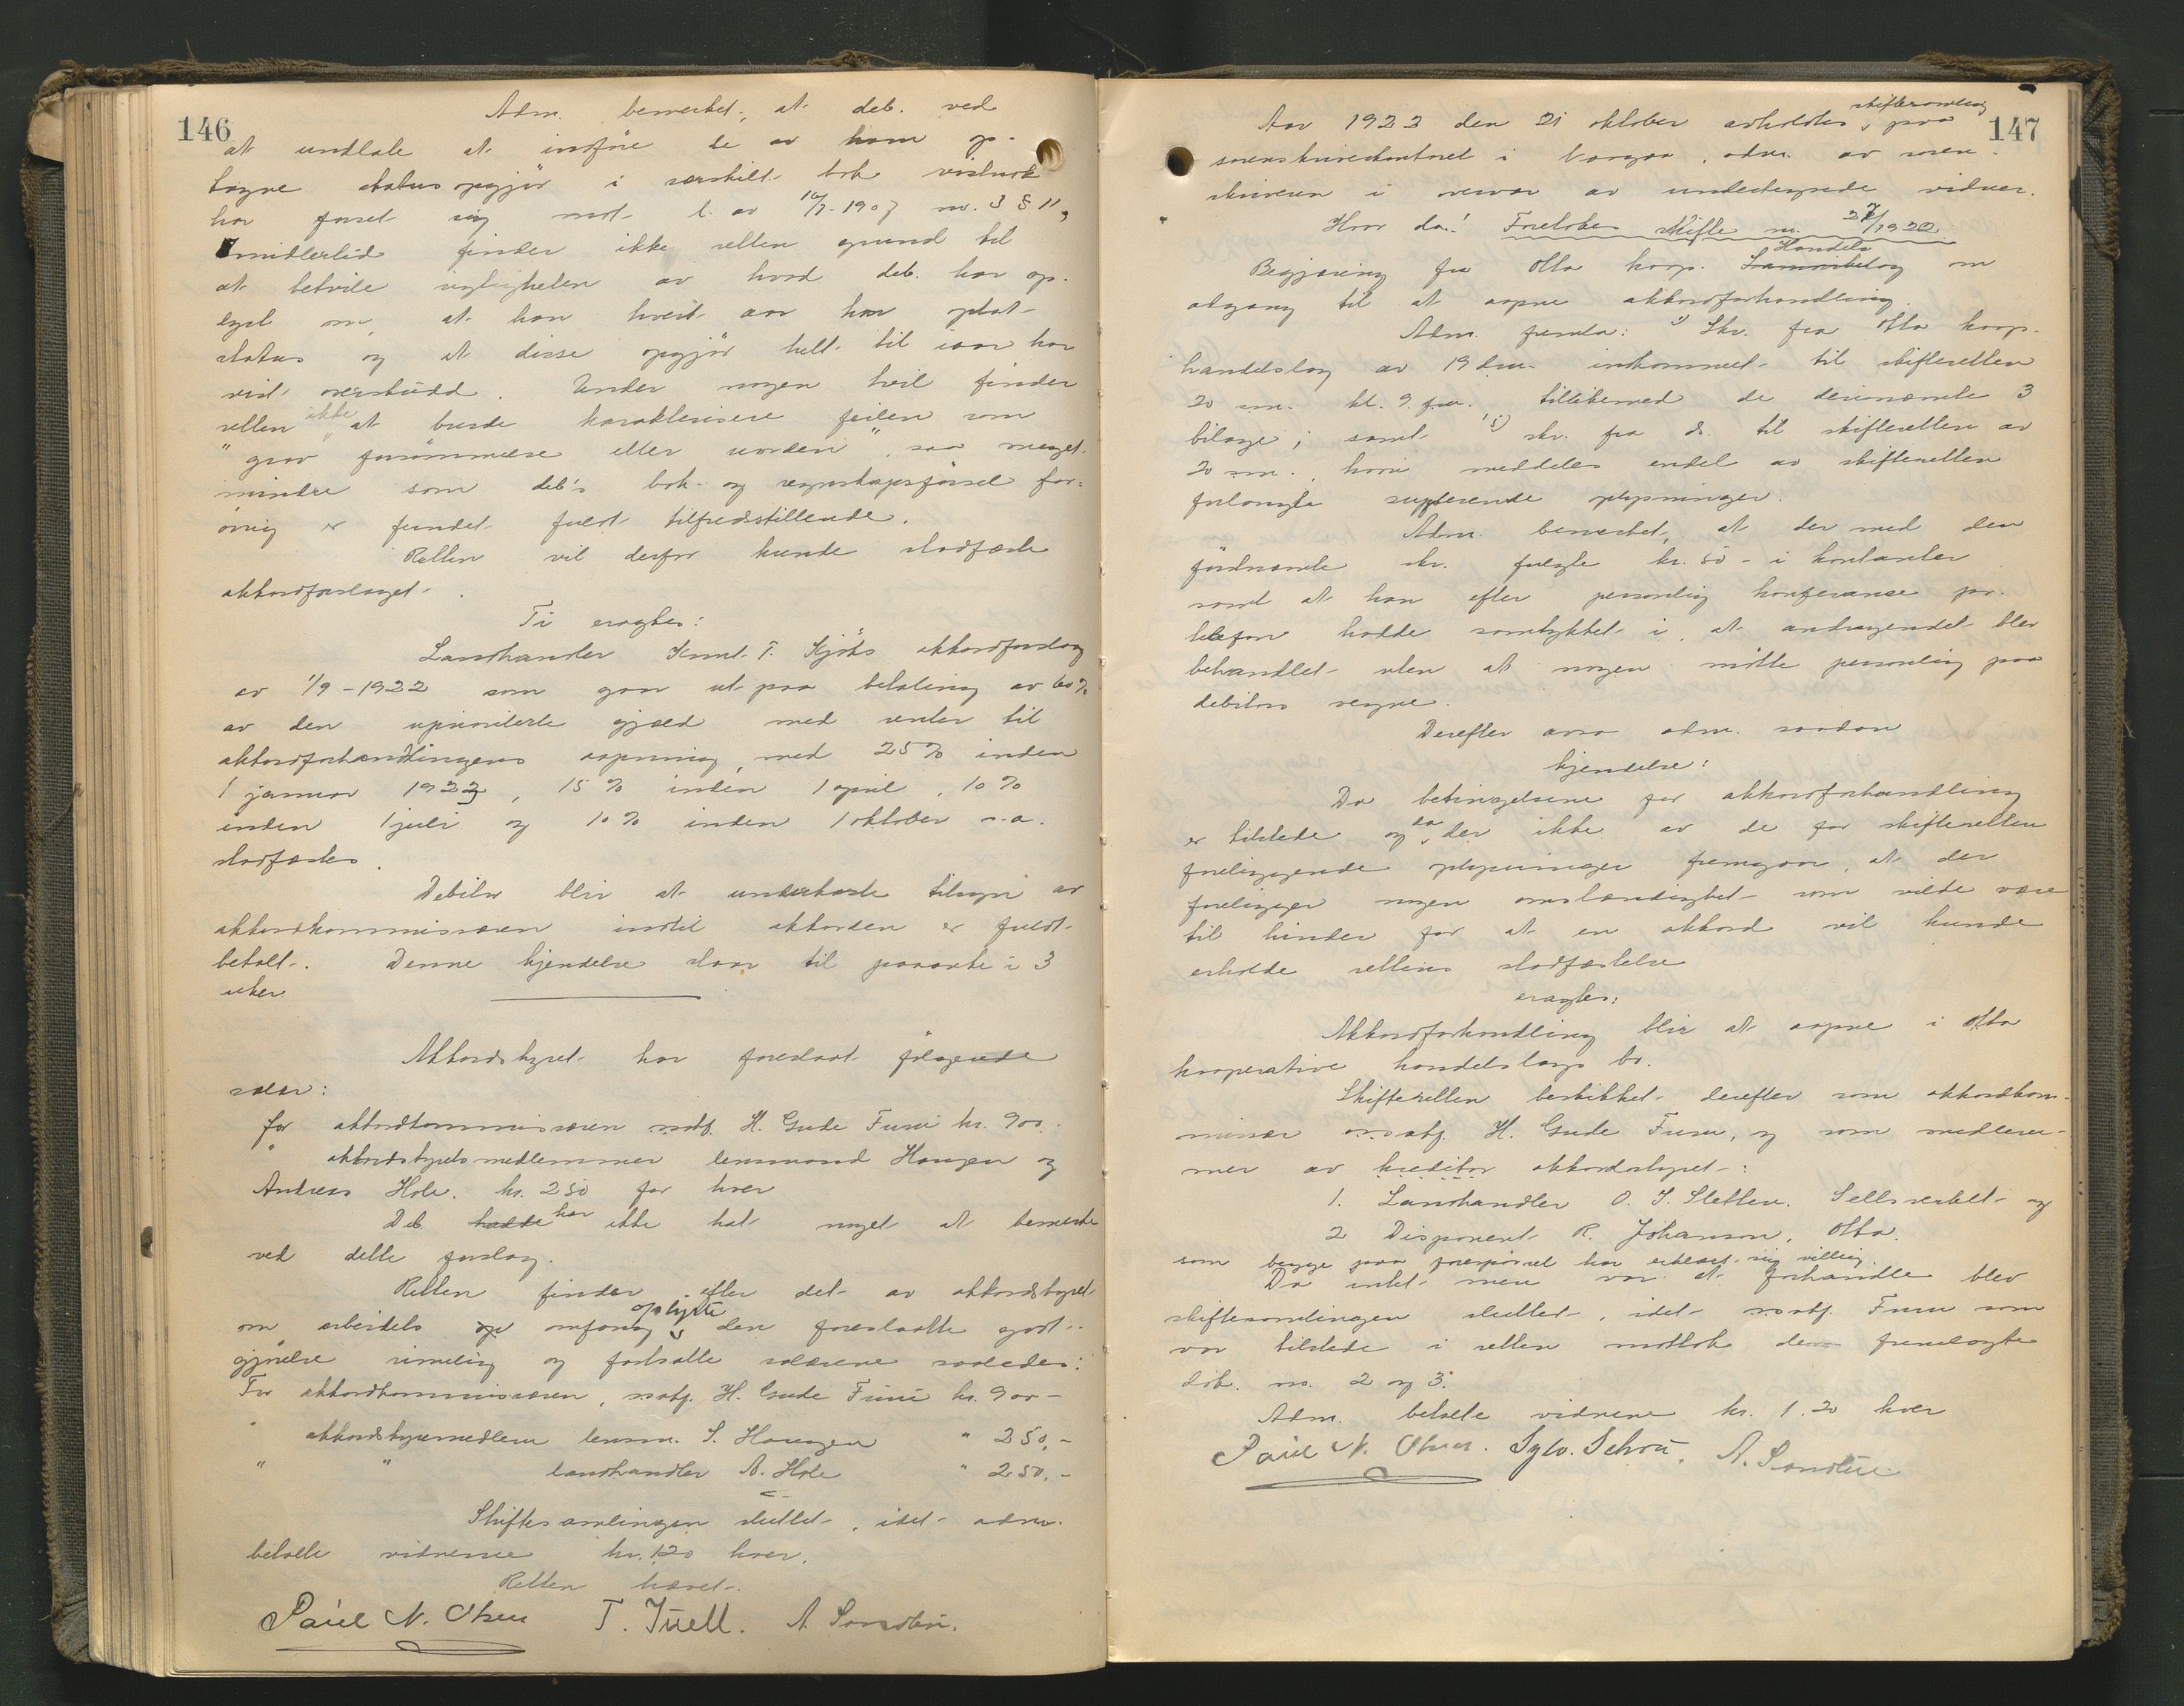 146
Adm. bemerket, at deb. ved
at undlate at indføre de av ham op-
tagne statusopgjør i særskilt bok vistnok
har forset sig mot l. av 16/7-1907 nr. 3 § 11,
Imidlertid finder ikke retten grund til
at betvile rigtigheten av hvad deb. har op-
lyst om, at han hvert aar har optat
status og at disse opgjør helt til iaar har
vist overskudd. Under nogen tvil finder
retten ikke at burde karakterisere feilen som
"grov forsømmelse eller uorden", saa meget
mindre som deb's bok- og regnskapsførsel for-
øvrig er fundet fuldt tilfredsstillende.
Retten vil derfor kunde stadfæste
akkordforslaget.
Ti eragtes:
Landhandler Knut T. Kjøks akkordforslag
av 1/9-1922 som gaar ut paa betaling av 60%
av den uprioriterte gjæld med renter til
akkordforhandlingens aapning, med 25% inden
1 januar 1923, 15% inden 1 april, 10%
inden 1 juli og 10% inden 1 oktober s.a.
stadfæstes.
Debitor blir at underkaste tilsyn av
akkordkommissæren indtil akkorden er fuldt
betalt. Denne kjendelse staar til paaanke i 3
uker.
Akkordstyret har foreslaat følgende
salær:
for akkordkommissæren ssaf. H. Gude Furu kr. 900.-
" akkordstyretsmedlemmer lensmand Haugen og
Andreas Hole. kr. 250 for hver
Deb. hadde har ikke hat noget at bemerke
ved dette forslag.
Retten finder efter det av akkordstyret
om arbeidets op omfang oplyste den foreslaatte godt-
gjørelse rimelig og fastsatte salærene saaledes:
For akkordkommissæren, ssaf. H. Gude Furu kr. 900 -
" akkordstyremedlem lensm. S. Haugen " 250.-
" " landhandler A. Hole " 250.-
Skiftesamlingen sluttet, idet adm.
betalte vidnerne kr. 1.20 hver.
Retten hævet.
Paul N. Olsen T. Juell. A. Sandbu.
147
Aar 1922 den 21 oktober avholdtes skiftesamling paa
sorenskriverkontoret i Vaagaa, adm. av soren-
skriveren i overvær av undertegnede vidner.
Hvor da! Foretokes skifte nr. 27/1922
Begjæring fra Otta koop. Handels om
adgang til at aapne akkordforhandling.
Adm. fremla: 1) Skr. fra Otta koop.
handelslag av 19 dm. indkommet til skifteretten
20 sm. kl. 9 fm. tillikemed de deri nævnte 3
bilage; samt skr. fra ds. til skifteretten av
20 sm. hvori meddeles endel av skifteretten
forlangte supplerende oplysninger.
Adm. bemerket, at der med den
førstnævnte skr. fulgte kr. 50 - i kontanter
samt at han efter personlig konferanse pr.
telefon hadde samtykket i, at andragendet blev
behandlet uten at nogen møtte personlig paa
debitors vegne.
Derefter avsa adm. saadan
kjendelse:
Da betingelsene for akkordforhandling
er tilstede og da der ikke av de for skifteretten
foreliggende oplysninger fremgaar, at der
foreligger nogen omstændighet som vilde være
til hinder for at en akkord vil kunde
erholde rettens stadfæstelse
eragtes:
Akkordforhandling blir at aapne i Otta
kooperative handelslags bo.
Skifteretten beskikket derefter som akkordkom-
missær ssaf. H. Gude Furu, og som medlem-
mer av kreditor akkordstyret:
1. Landhandler O. J. Sletten. Sellsverket og
2 Disponent R. Johansen, Otta.
som begge paa forespørsel har erklært sig villig.
Da intet mere var at forhandle blev
skiftesamlingen sluttet, idet ssaf. Furu som
var tilstede i retten mottok den fremlagte
dok. nr. 2 og 3.
Adm. betalte vidnene kr. 1.20 hver
Paul N. Olsen. Sylv. Schou. A. Sandbu